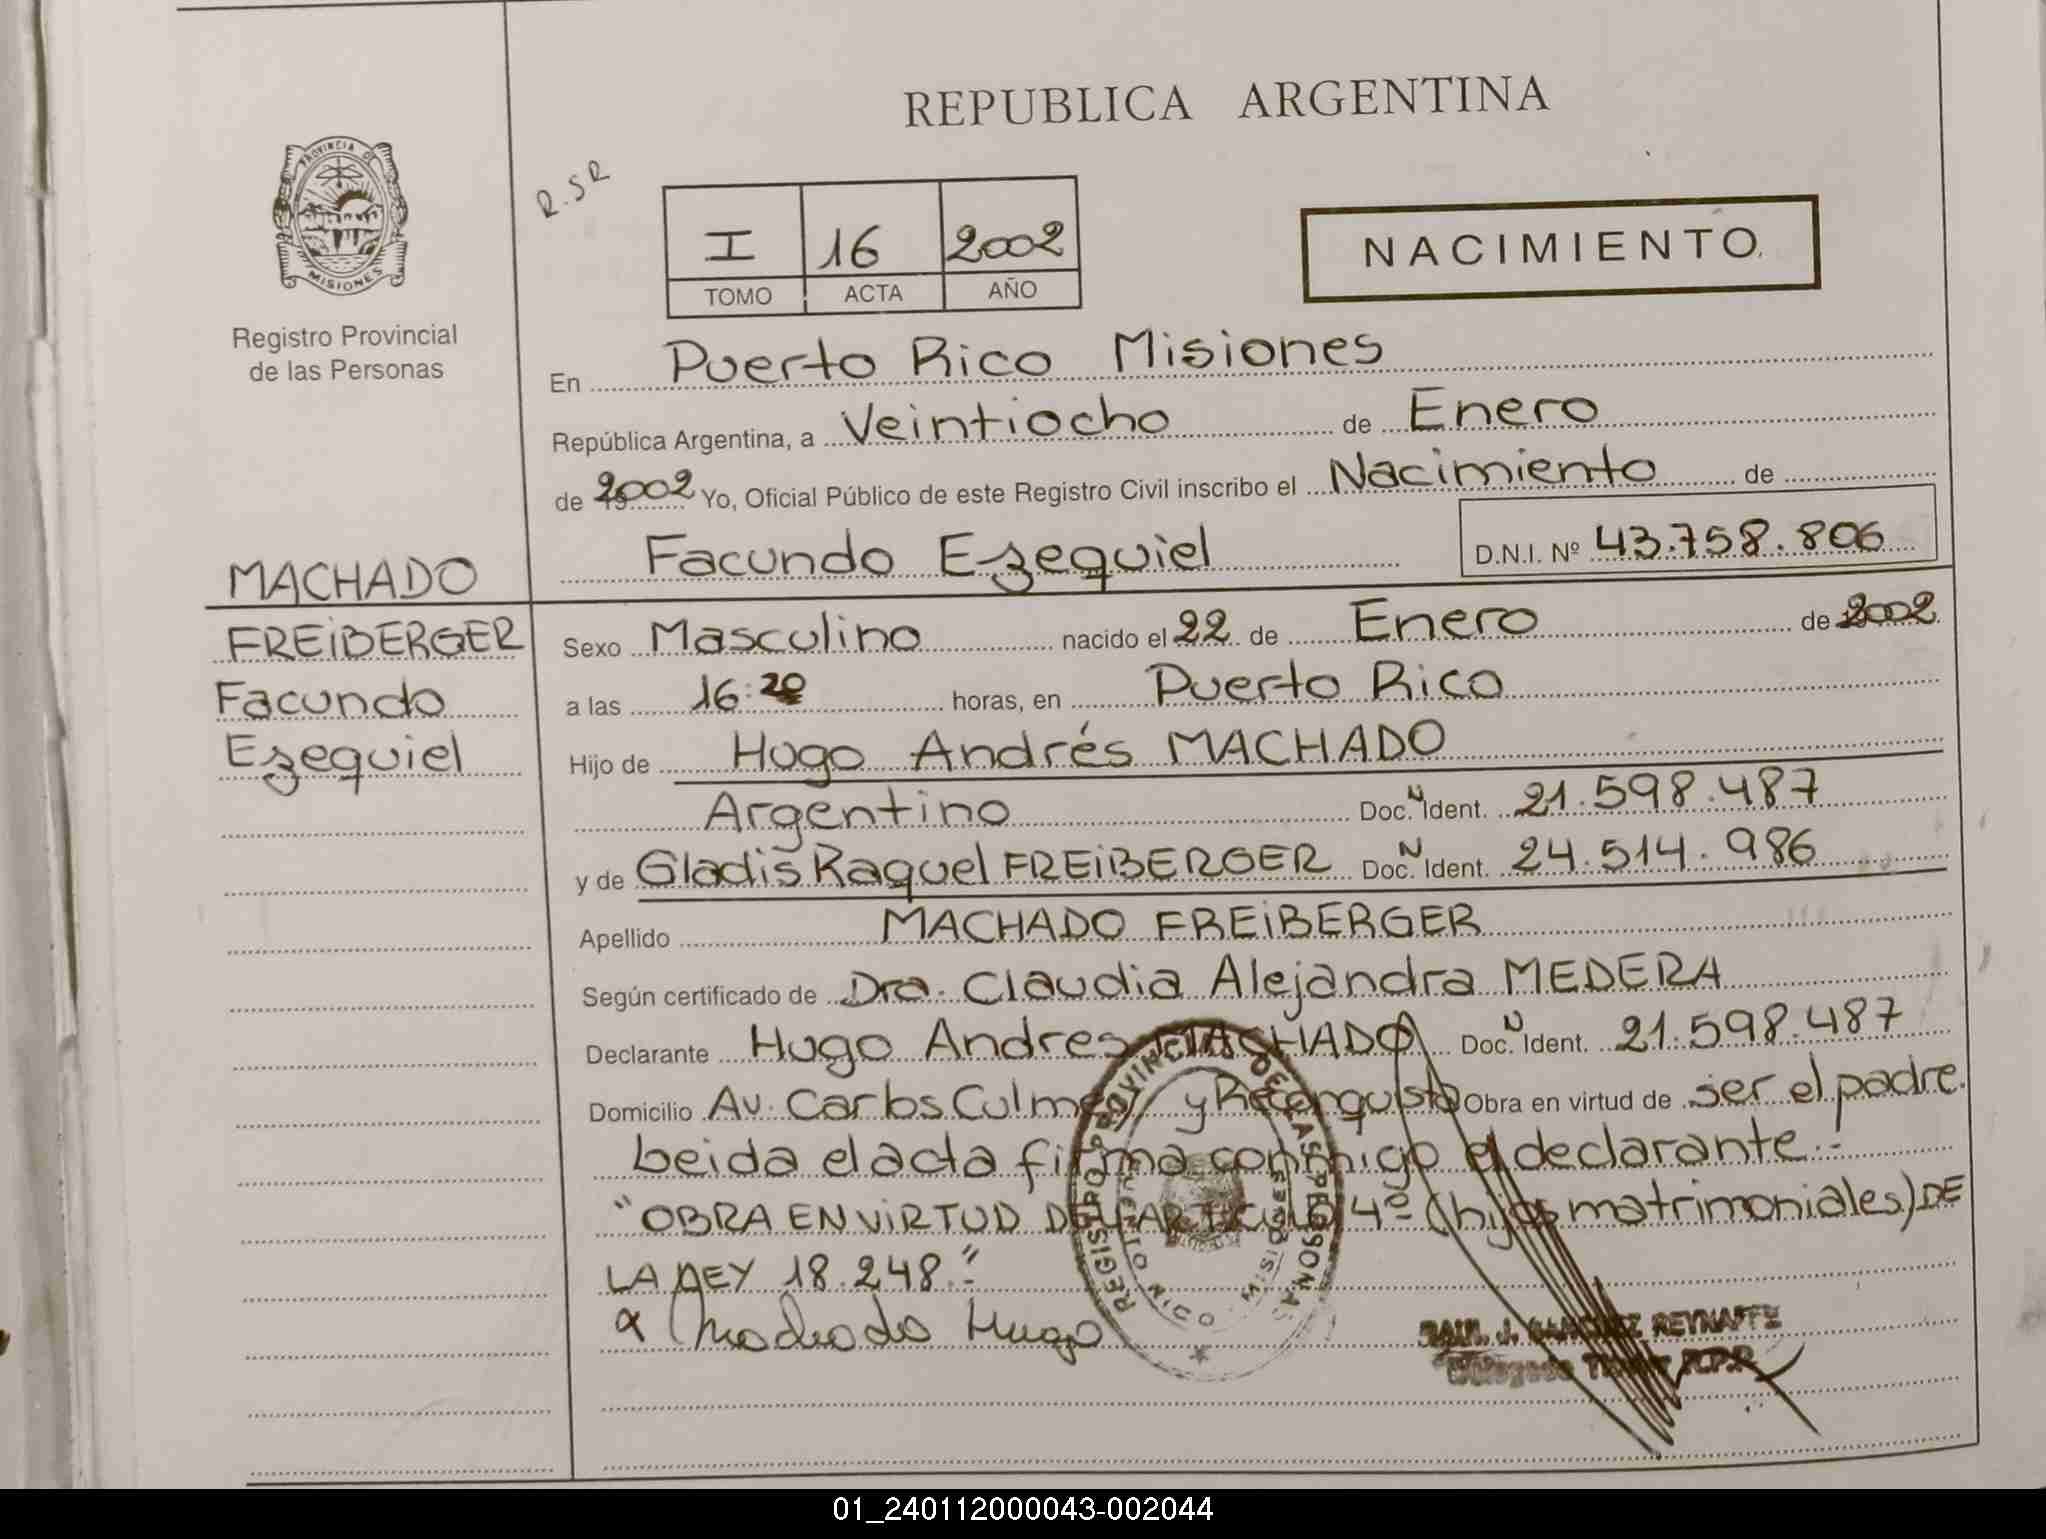 REPUBLICA ARGENTINA
PROVINCIA DE
MISIONES
Registro Provincial
de las Personas
R.SR
I 16 2002
TOMO ACTA AÑO
NACIMIENTO
En Puerto Rico Misiones
República Argentina, a Veintiocho de Enero
de 2002 Yo, Oficial Público de este Registro Civil inscribo el Nacimiento de
Facundo Ezequiel D.N.I. Nº 43.758.806
MACHADO
FREiBERGER
Facundo
Ezequiel
Sexo Masculino nacido el 22 de Enero de 2002
a las 16:20 horas, en Puerto Rico
Hijo de Hugo Andrés MACHADO
Argentino Doc. N Ident. 21.598.487
y de Gladis Raquel FREiBERGER Doc. N Ident. 24.514.986
Apellido MACHADO FREiBERGER
Según certificado de Dra. Claudia Alejandra MEDERA
Declarante Hugo Andres MACHADO Doc. N Ident. 21.598.487
Domicilio Av. Carlos Culmey y Reconquista Obra en virtud de ser el padre.
Leida el acta firma conmigo el declarante.-
"OBRA EN ViRTUD DEL ARTICULO 4º (hijos matrimoniales) DE
LA LEY 18.248."
Machado Hugo
REGISTRO PROVINCIAL DE LAS PERSONAS
MISIONES
RAUL J. SANCHEZ REYNAFFE
Delegado Titular R.P.P.
01_240112000043-002044